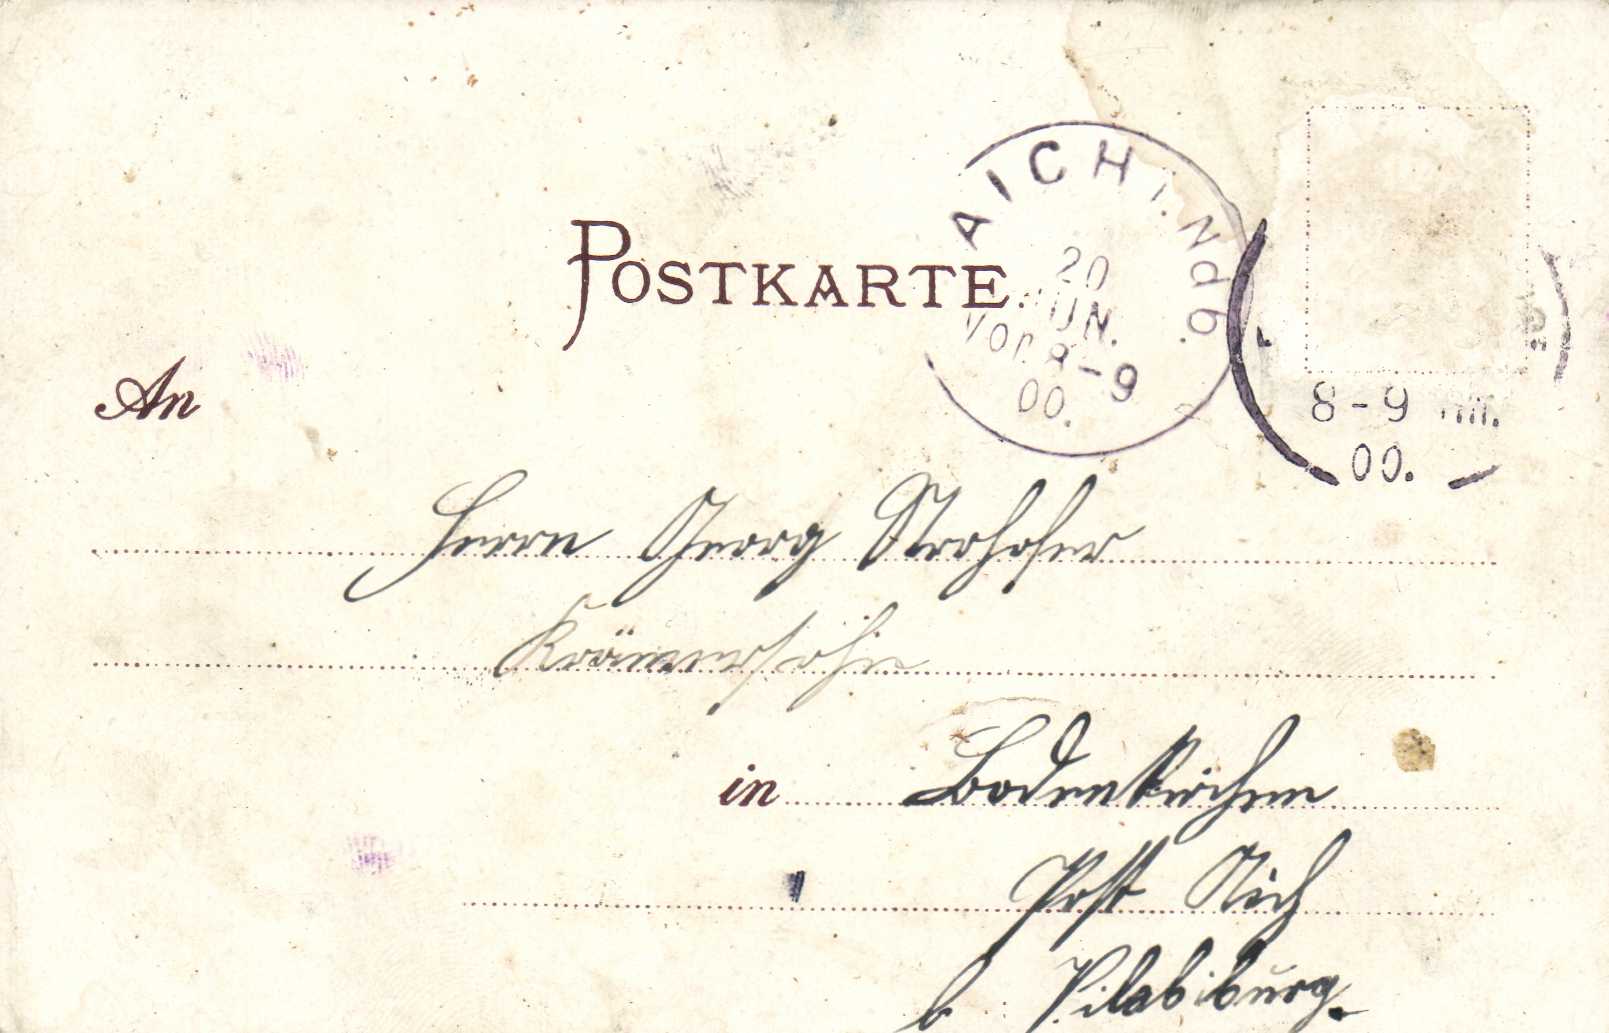 AICH i. Ndb.
20
JUN.
Vor. 8-9
00.
8-9 Nm.
00.
POSTKARTE.
An
Herrn Georg Strohofer
Krämerssohn
in Bodenkirchen
Post Aich
b. Vilsbiburg.